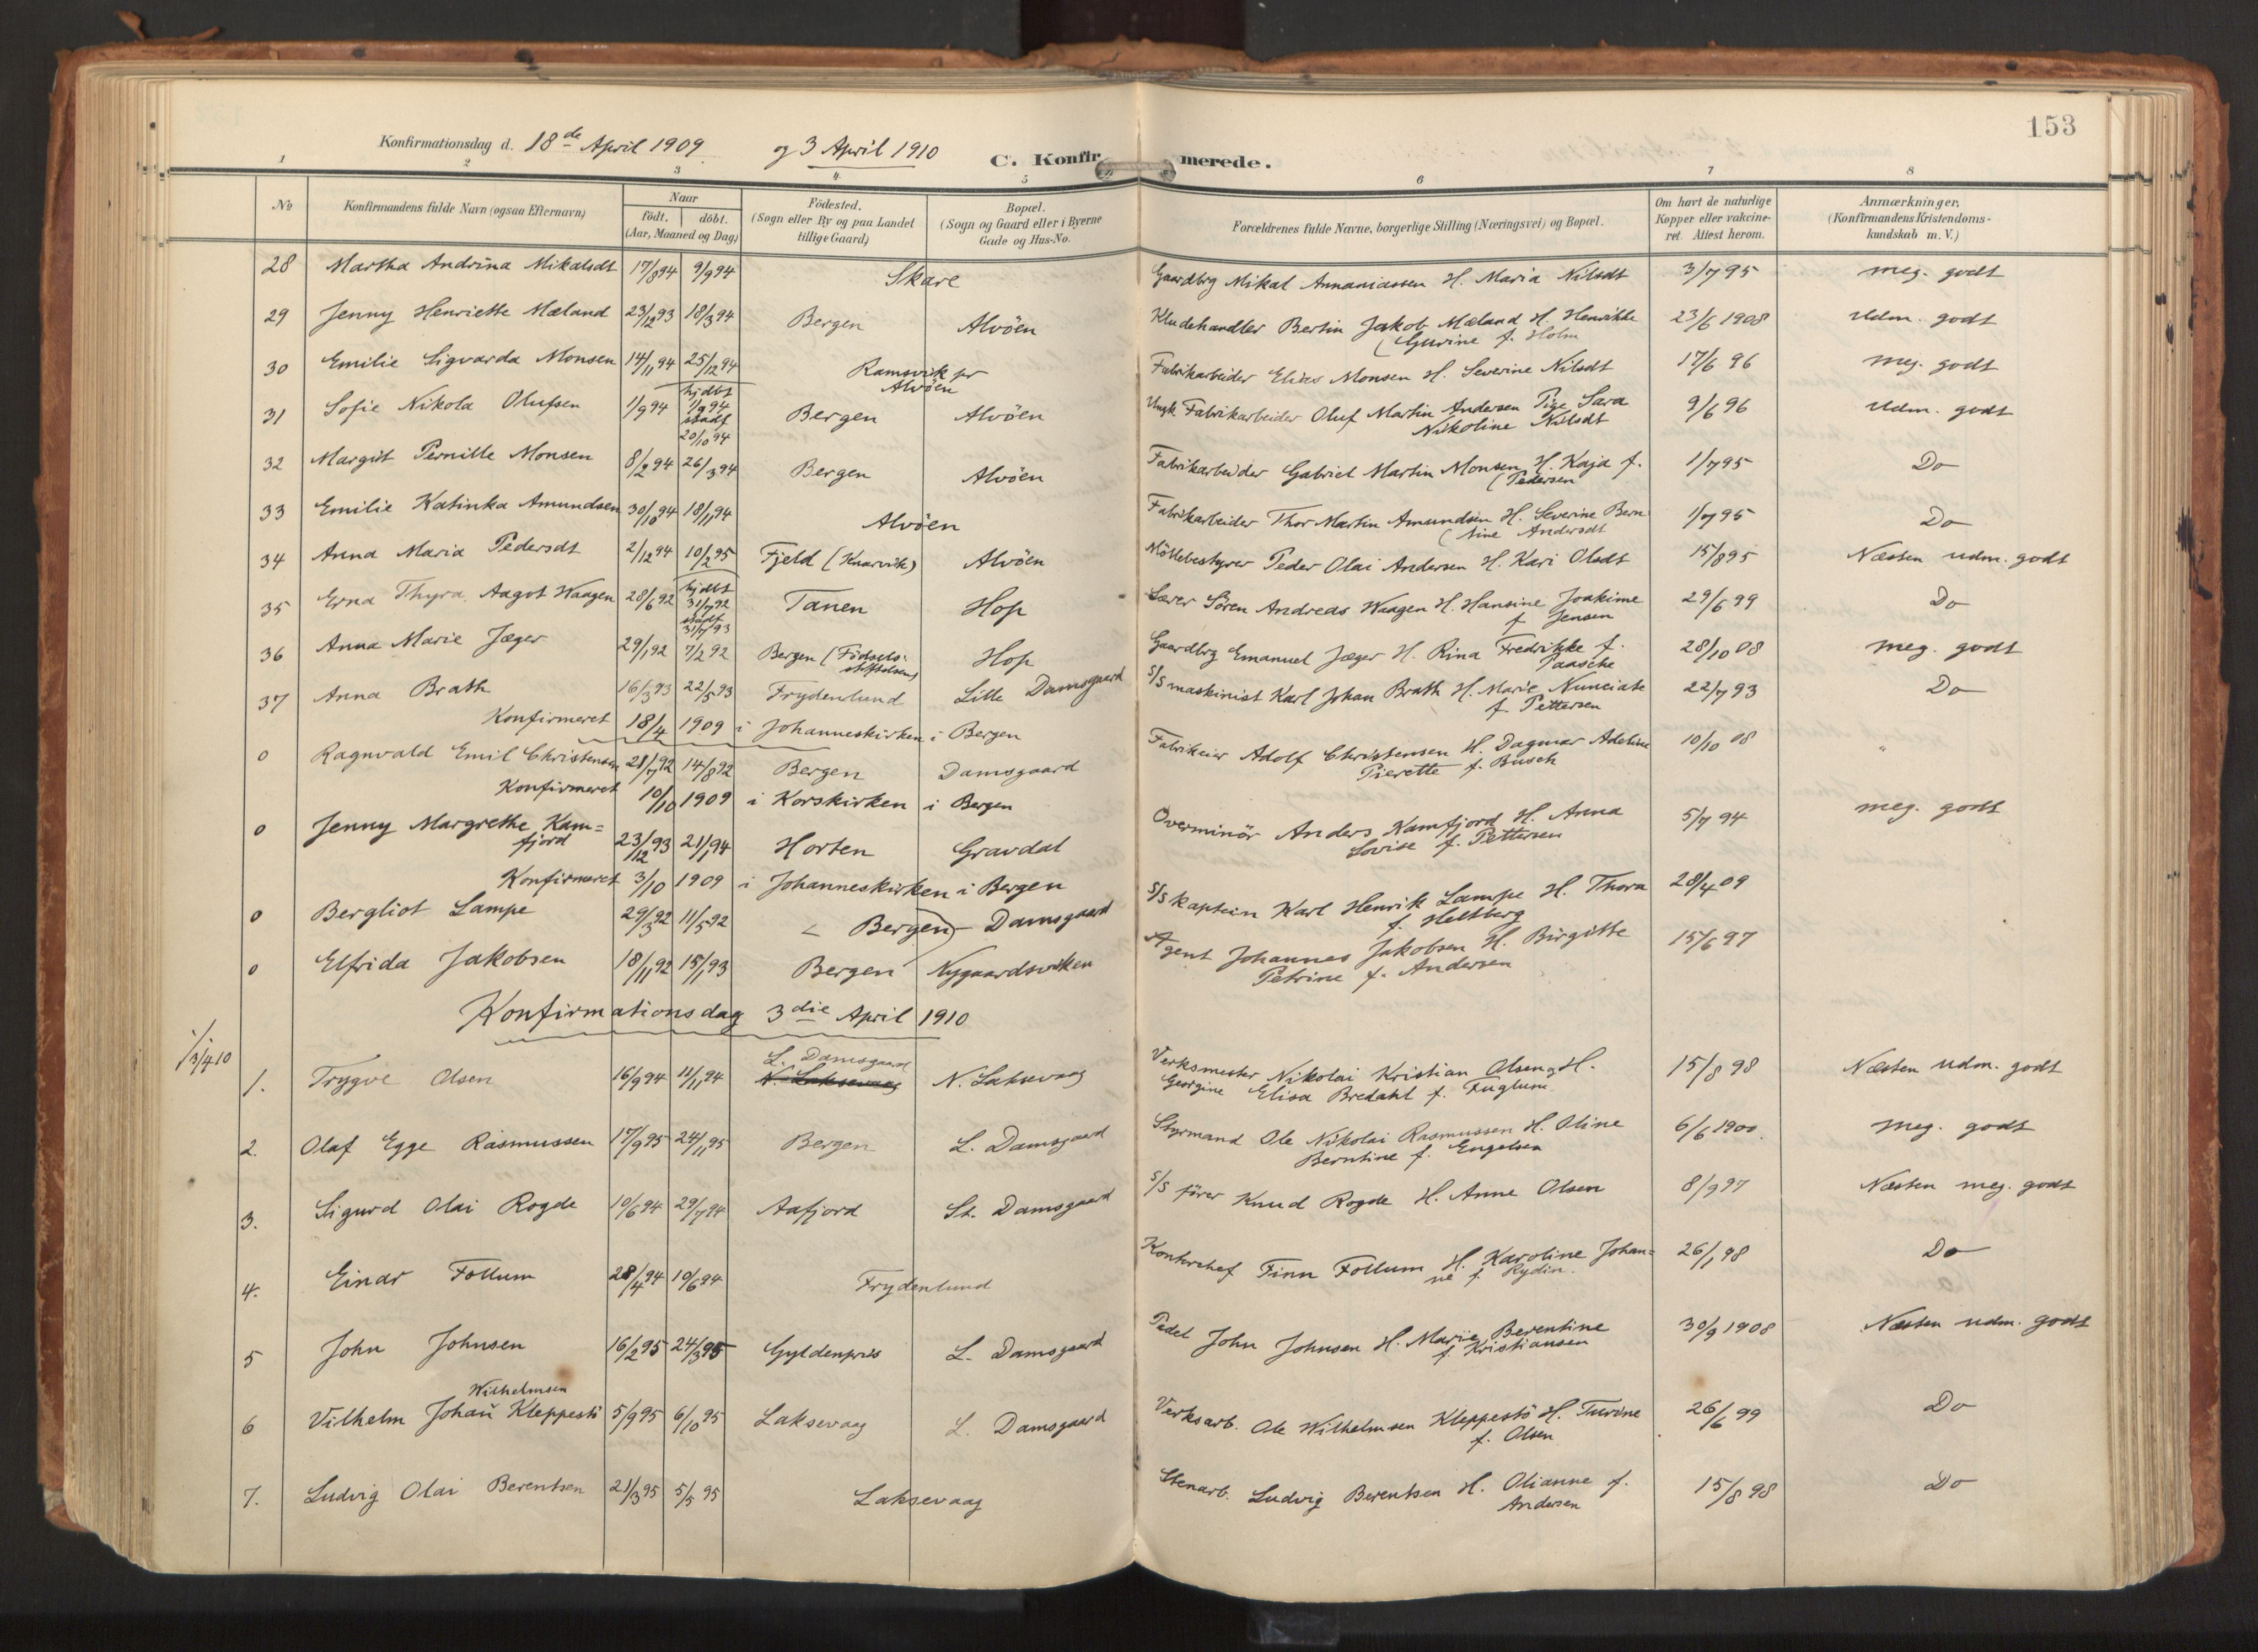 153
Konfirmationsdag d. 18de April 1909 og 3 April 1910 C. Konfirmerede.
1 2 3 4 5 6 7 8
No Konfirmandens fulde Navn (ogsaa Efternavn) Naar födt. döbt. (Aar, Maaned og Dag) Födested. (Sogn eller By og paa Landet tillige Gaard) Bopæl. (Sogn og Gaard eller i Byerne Gade og Hus-No. Forældrenes fulde Navne, borgerlige Stilling (Næringsvei) og Bopæl. Om havt de naturlige Kopper eller vakcineret. Attest herom. Anmærkninger. (Konfirmandens Kristendomskundskab m. V.)
28 Martha Andrina Mikalsdt 17/8 94 9/9 94 Skare Gaardbrg Mikal Annaniassen H. Maria Nilsdt 3/7 95 meg. godt
29 Jenny Henriette Mæland 23/12 93 18/3 94 Bergen Alvöen Kludehandler Bertin Jakob Mæland H. Henrikke 23/6 1908 Udm. godt
(Gurine f. Holm
30 Emilie Sigvarda Monsen 14/11 94 25/12 94 Ramsvik pr Alvöen Fabrikarbeider Elias Monsen H. Severine Nilsdt 17/6 96 meg. godt
31 Sofie Nikola Olufsen 1/9 94 hjdbt 1/9 94 stadf 20/10 94 Bergen Alvöen Ungk Fabrikarbeider Oluf Martin Andersen Pige Sara 9/6 96 Udm. godt
Nikoline Nilsdt
32 Margit Pernille Monsen 8/2 94 26/3 94 Bergen Alvöen Fabrikarbeider Gabriel Martin Monsen H. Kaja f. 1/7 95 Do
(Pedersen
33 Emilie Katinka Amundsen 30/10 94 18/11 94 Alvöen Fabrikarbeider Thor Martin Amundsen H. Severine Bern 1/7 95 Do
(tine Andersdt
34 Anna Maria Pedersdt 2/12 94 10/2 95 Fjeld (Knarvik) Alvöen Möllebestyrer Peder Olai Andersen H. Kari Olsdt 15/8 95 Næsten udm. godt
35 Erna Thyra Aagot Waagen 28/6 92 hjdbt 31/7 92 stadf 31/7 93 Tanen Hop Lærer Sören Andreas Waagen H. Hansine Joakime 29/6 99 Do
f Jensen
36 Anna Marie Jæger 29/1 92 7/2 92 Bergen (Födselsstiftelsen) Hop Gaardbrg Emanuel Jæger H. Rina Fredrikke f. 28/10 08 meg. godt
Paasche
37 Anna Brath 16/3 93 22/5 93 Frydenlund Lille Damsgaard S/S maskinist Karl Johan Brath H. Marie Nunciate 22/7 93 Do
f. Pettersen
Konfirmeret 18/4 1909 i Johanneskirken i Bergen
0 Ragnvald Emil Christensen 21/7 92 14/8 92 Bergen Damsgaard Fabrikeier Adolf Christensen H. Dagmar Adeline 10/10 08 "
Pierette f. Busch
Konfirmeret 10/10 1909 i Korskirken i Bergen
0 Jenny Margrethe Kamfjord 23/12 93 21/1 94 Horten Gravdal Overminör Anders Kamfjord H. Anna 5/7 94 meg. godt
Lovise f. Pettersen
Konfirmeret 3/10 1909 i Johanneskirken i Bergen
0 Bergliot Lampe 29/3 92 11/5 92 Bergen Damsgaard S/S kaptein Karl Henrik Lampe H. Thora 28/4 09
f. Heltberg
0 Elfrida Jakobsen 18/11 92 15/1 93 Bergen Nygaardsviken Agent Johannes Jakobsen H. Birgitte 15/6 97
Petrine f. Andersen
Konfirmationsdag 3die April 1910
3/4 10
1. Trygve Olsen 16/9 94 11/11 94 L. Damsgaard N. Laksevaag N. Laksevaag Verksmester Nikolai Kristian Olsen, H. 15/8 98 Næsten udm. godt
Georgine Elisa Bredahl f. Fuglum
2. Olaf Egge Rasmussen 17/9 95 24/11 95 Bergen L. Damsgaard Styrmand Ole Nikolai Rasmussen H. Oline 6/6 1900. meg. godt
Berntine f. Engelsen
3. Sigurd Olai Rogde 10/6 94 29/7 94 Aafjord St. Damsgaard S/S förer Knud Rogde H. Anne Olsen 8/9 97 Næsten meg. godt
4. Einar Follum 28/4 94 10/6 94 Frydenlund Kontorchef Finn Follum H. Karoline Johan= 26/1 98 Do
ne f. Rydin.
5 John Johnsen 16/2 95 24/3 95 Gyldenpris L. Damsgaard Pedel John Johnsen H. Marie Berentine 30/9 1908 Næsten udm. godt
f. Kristiansen
Wilhelmsen
6 Vilhelm Johan Kleppestö 5/9 95 6/10 95 Laksevaag L. Damsgaard Verksarb. Ole Wilhelmsen Kleppestö H. Turine 26/6 99 Do
f. Olsen
7. Ludvig Olai Berentsen 21/3 95 5/5 95 Laksevaag Stenarb. Ludvig Berentsen H. Olianne f. 15/8 98 Do
Andersen